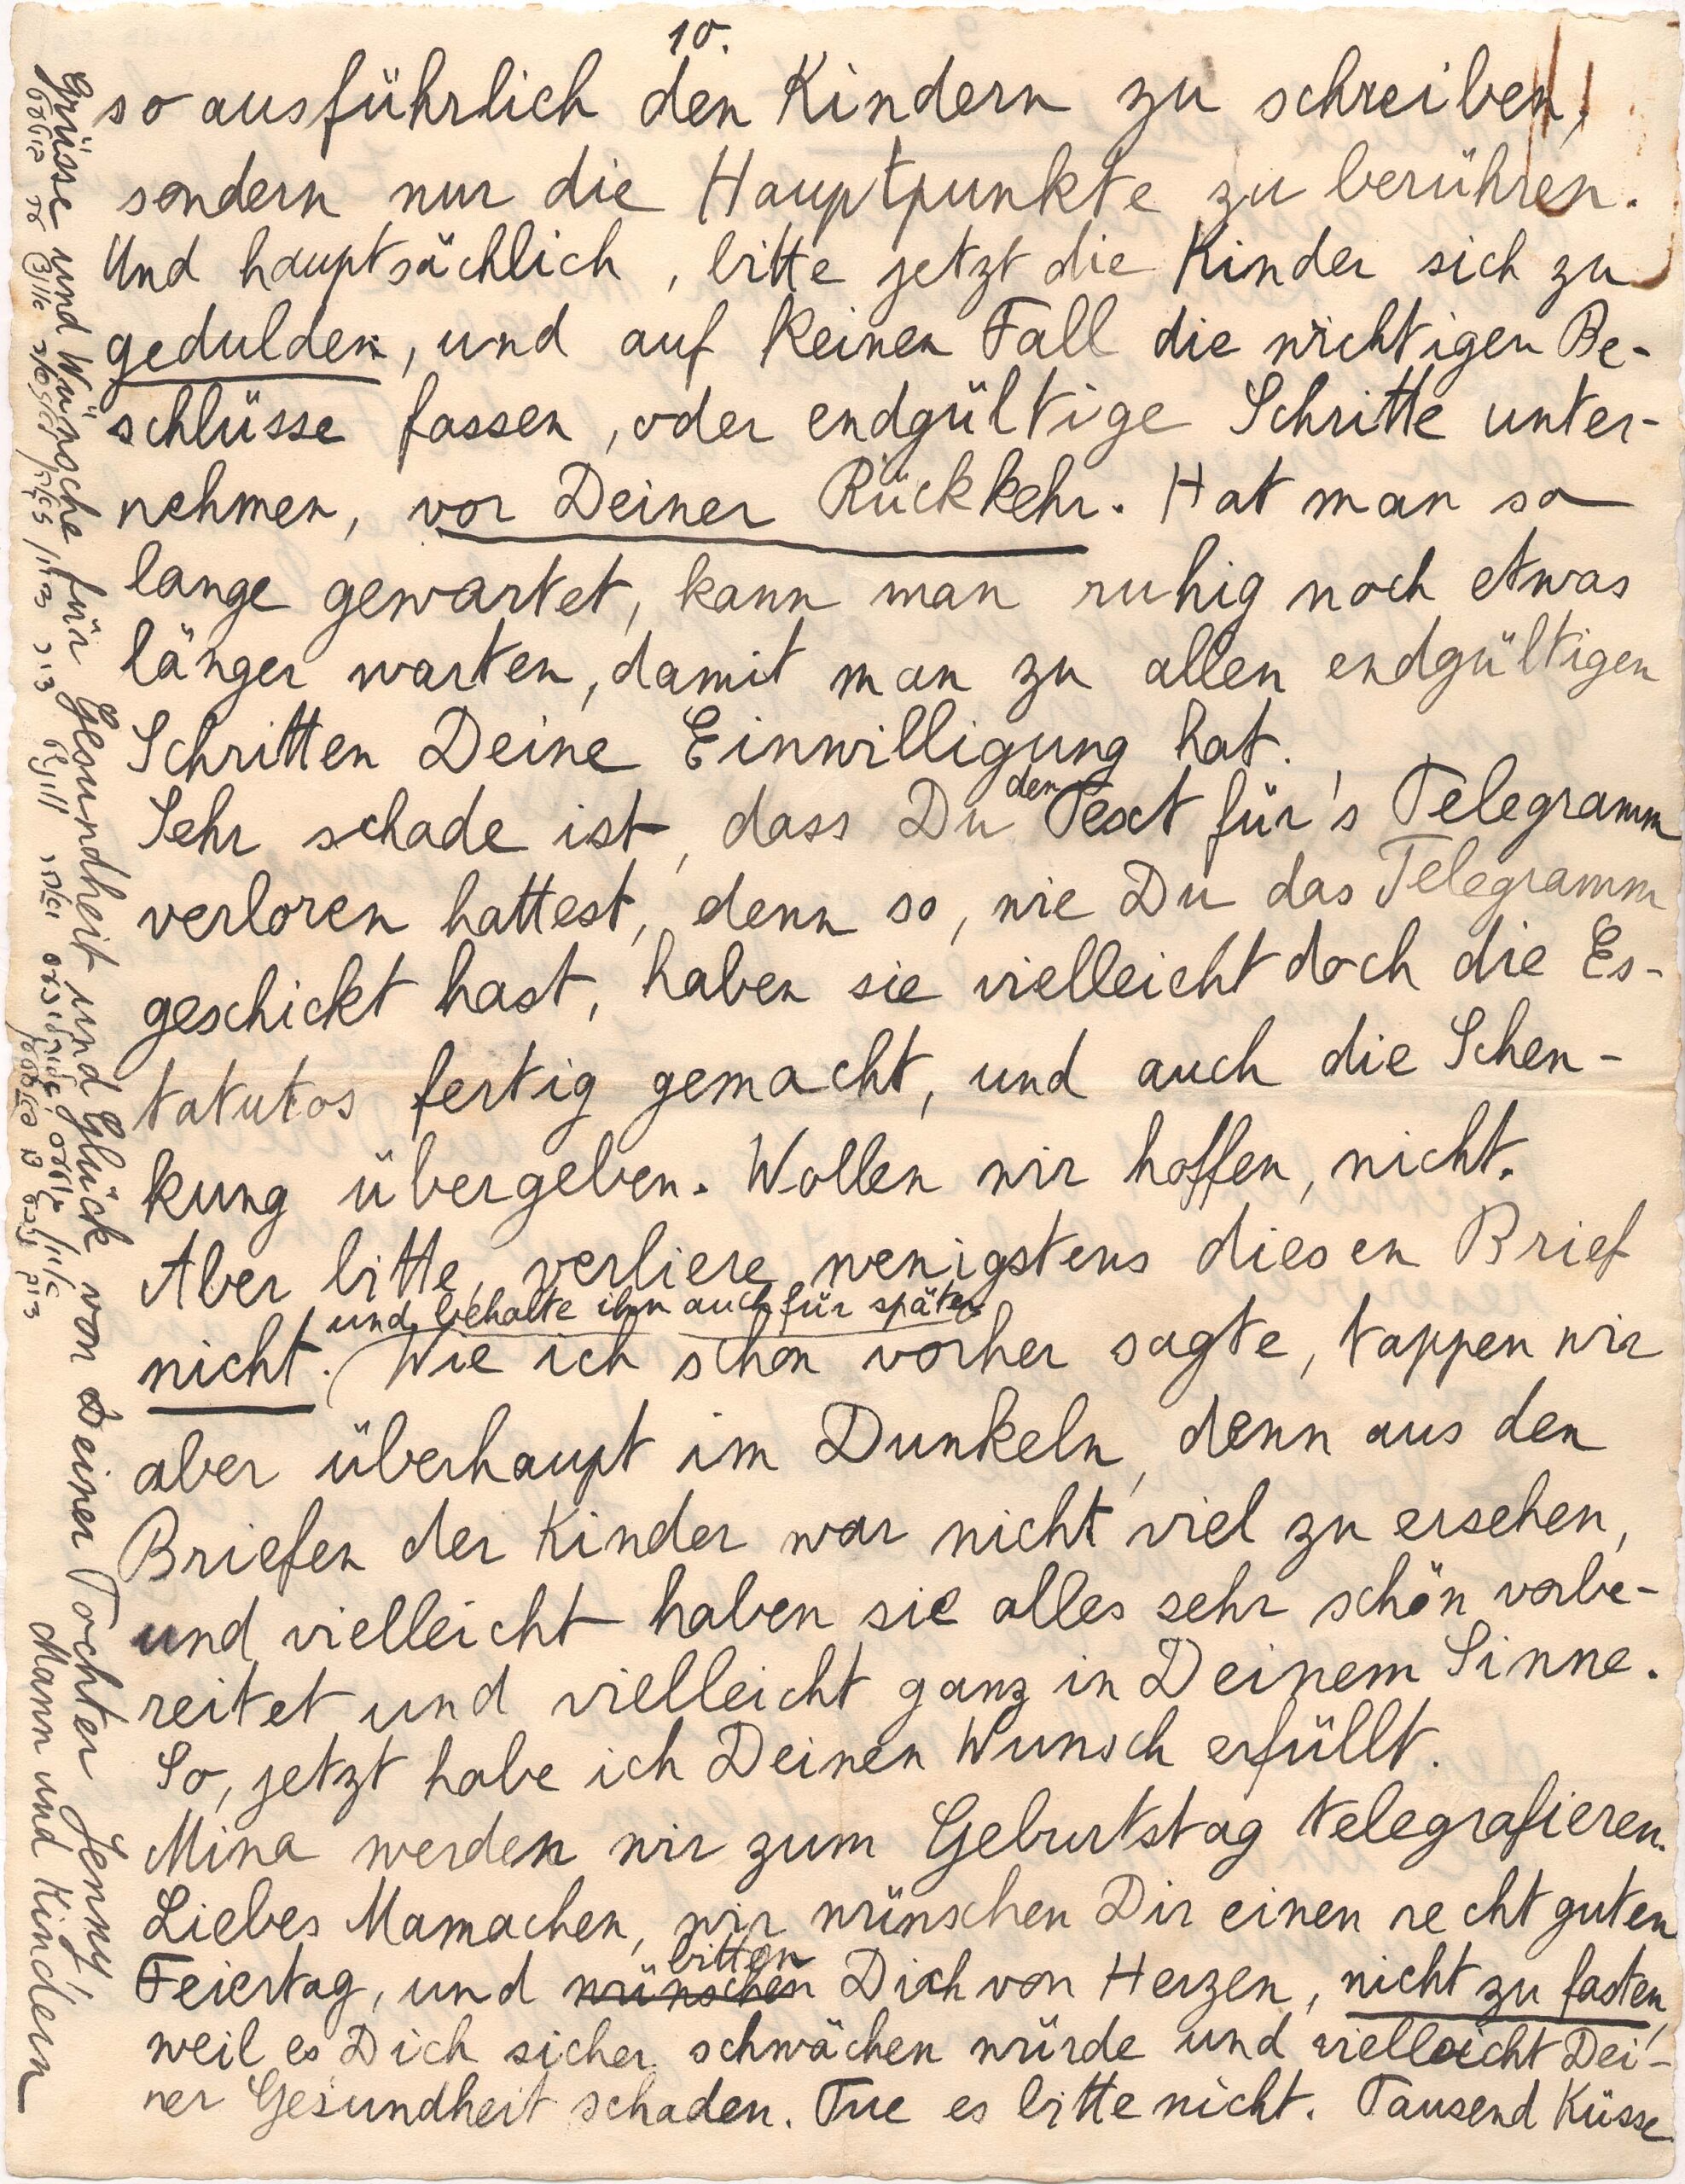 10.
so ausführlich den Kindern zu schreiben,
sondern nur die Hauptpunkte zu berühren.
Und hauptsächlich, bitte jetzt die Kinder sich zu
gedulden, und auf keinen Fall die wichtigen Be-
schlüsse fassen, oder endgültige Schritte unter-
nehmen, vor Deiner Rückkehr. Hat man so
lange gewartet, kann man ruhig noch etwas
länger warten, damit man zu allen endgültigen
Schritten Deine Einwilligung hat.
Sehr schade ist, dass Du den Text für's Telegramm
verloren hattest, denn so, wie Du das Telegramm
geschickt hast, haben sie vielleicht doch die Es-
tatutos fertig gemacht, und auch die Schen-
kung übergeben. Wollen wir hoffen, nicht.
Aber bitte, verliere wenigstens diesen Brief
nicht. und behalte ihn auch für später
Wie ich schon vorher sagte, tappen wir
aber überhaupt im Dunkeln, denn aus den
Briefen der Kinder war nicht viel zu ersehen,
und vielleicht haben sie alles sehr schön vorbe-
reitet und vielleicht ganz in Deinem Sinne.
So, jetzt habe ich Deinen Wunsch erfüllt.
Mina werden wir zum Geburtstag telegrafieren.
Liebes Mamachen, wir wünschen Dir einen recht guten
Feiertag, und wünschen bitten Dich von Herzen, nicht zu fasten,
weil es Dich sicher schwächen würde und vielleicht Dei-
ner Gesundheit schaden. Tue es bitte nicht. Tausend Küsse
Grüsse und Wünsche für Gesundheit und Glück von Deiner Tochter Jenny,
Mann und Kindern